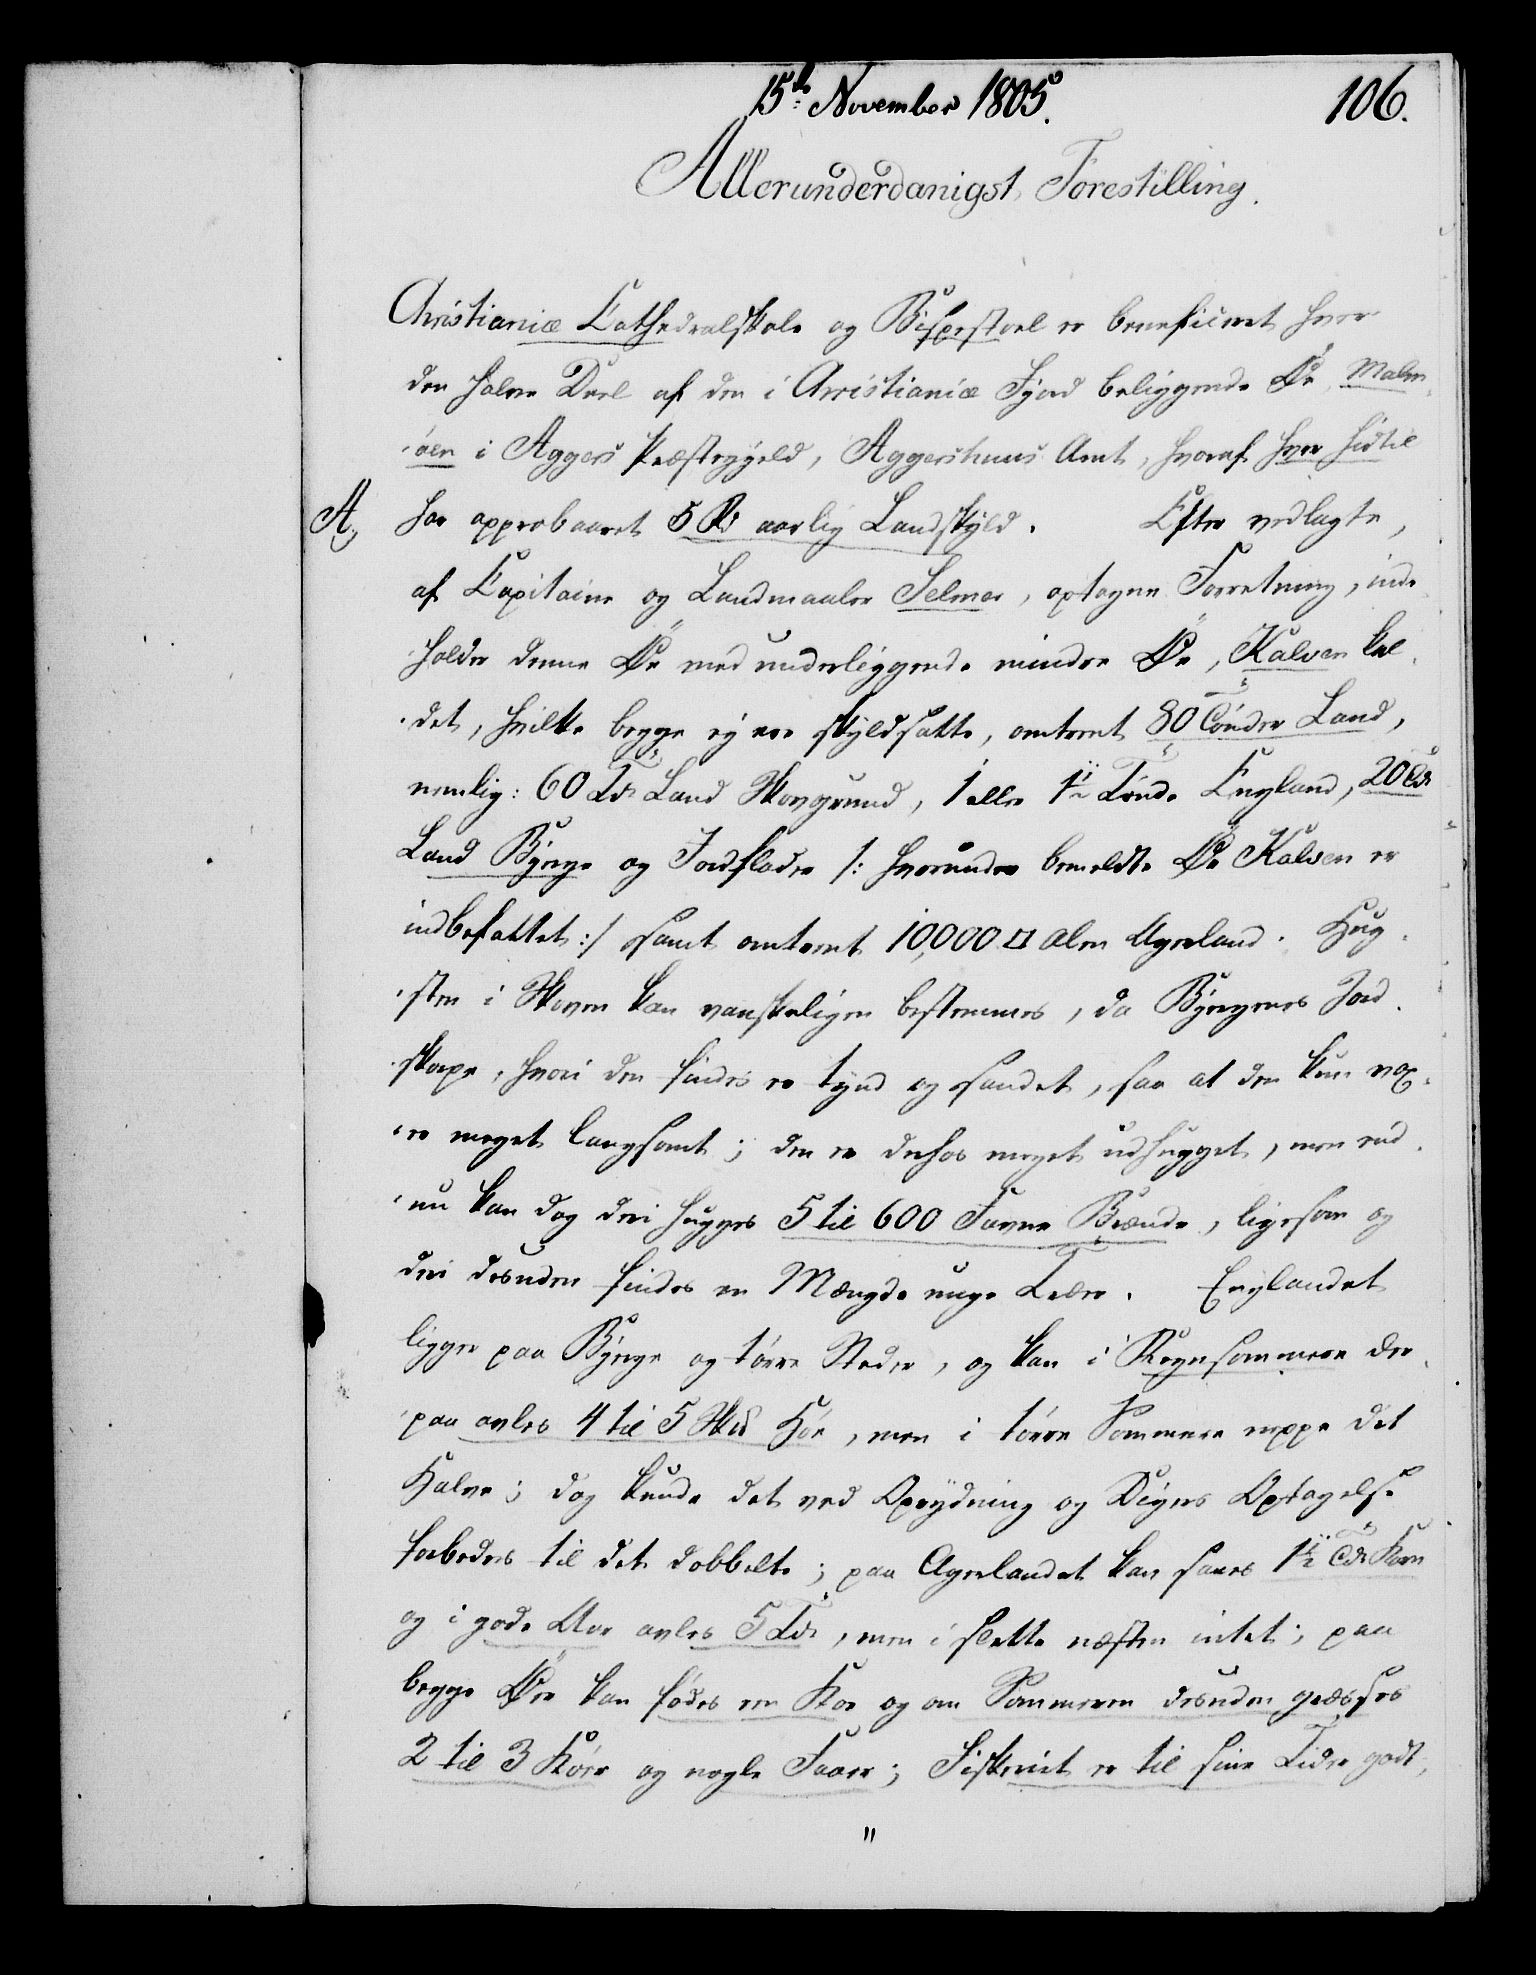 15de November 1805.
106.
Allerunderdanigst Forestilling.
Christianiæ Cathedralskole og Bispestoel er beneficeret hver
den halve Deel af den i Christianiæ Fjord beliggende Øe, Malm-
øen i Aggers Præstegjeld, Aggershuus Amt, hvoraf hver hidtil
A, har oppebaaret 5 Rd aarlig Landskyld. Efter vedlagte,
af Capitaine og Landmaaler Selmer, optagne Forretning, inde-
holder denne Øe med underliggende mindre Øe, Kalven kal-
det, hvilke begge ej ere skyldsatte, omtrent 80 Tönder Land,
nemlig: 60 Tdr Land Skovgrund, 1 eller 1½ Tönde England, 20 Tdr
Land Bjerge og Jordflader /: hvorunder bemeldte Øe Kalven er
indbefattet :/ samt omtrent 10,000 □ Alen Agerland. Hug-
sten i Skoven kan vanskeligen bestemmes, da Bjergenes Jord-
skorpe, hvori den findes er tynd og sandet, saa at den kun vox-
er meget langsomt; den er derhos meget udhugget, men end-
nu kan dog deri hugges 5 til 600 Favne Brænde, ligesom og
deri desuden findes en Mængde unge Træer. Englandet
ligger paa Bjerge og törre Steder, og kan i Regnsommere der-
paa avles 4 til 5 Sk℔ Höe, men i törre Sommere neppe det
Halve; dog kunde det ved Oprydning og Digers Optagelse
forbedres til det dobbelte; paa Agerlandet kan saaes 1½ Tdr Korn
og i gode Aar avles 5 Tdr, men i slette næsten intet; paa
begge Øer kan födes en Koe og om Sommeren desuden græsses
2 til 3 Köer og nogle Faar; Fiskeriet er til sine Tider godt,
"